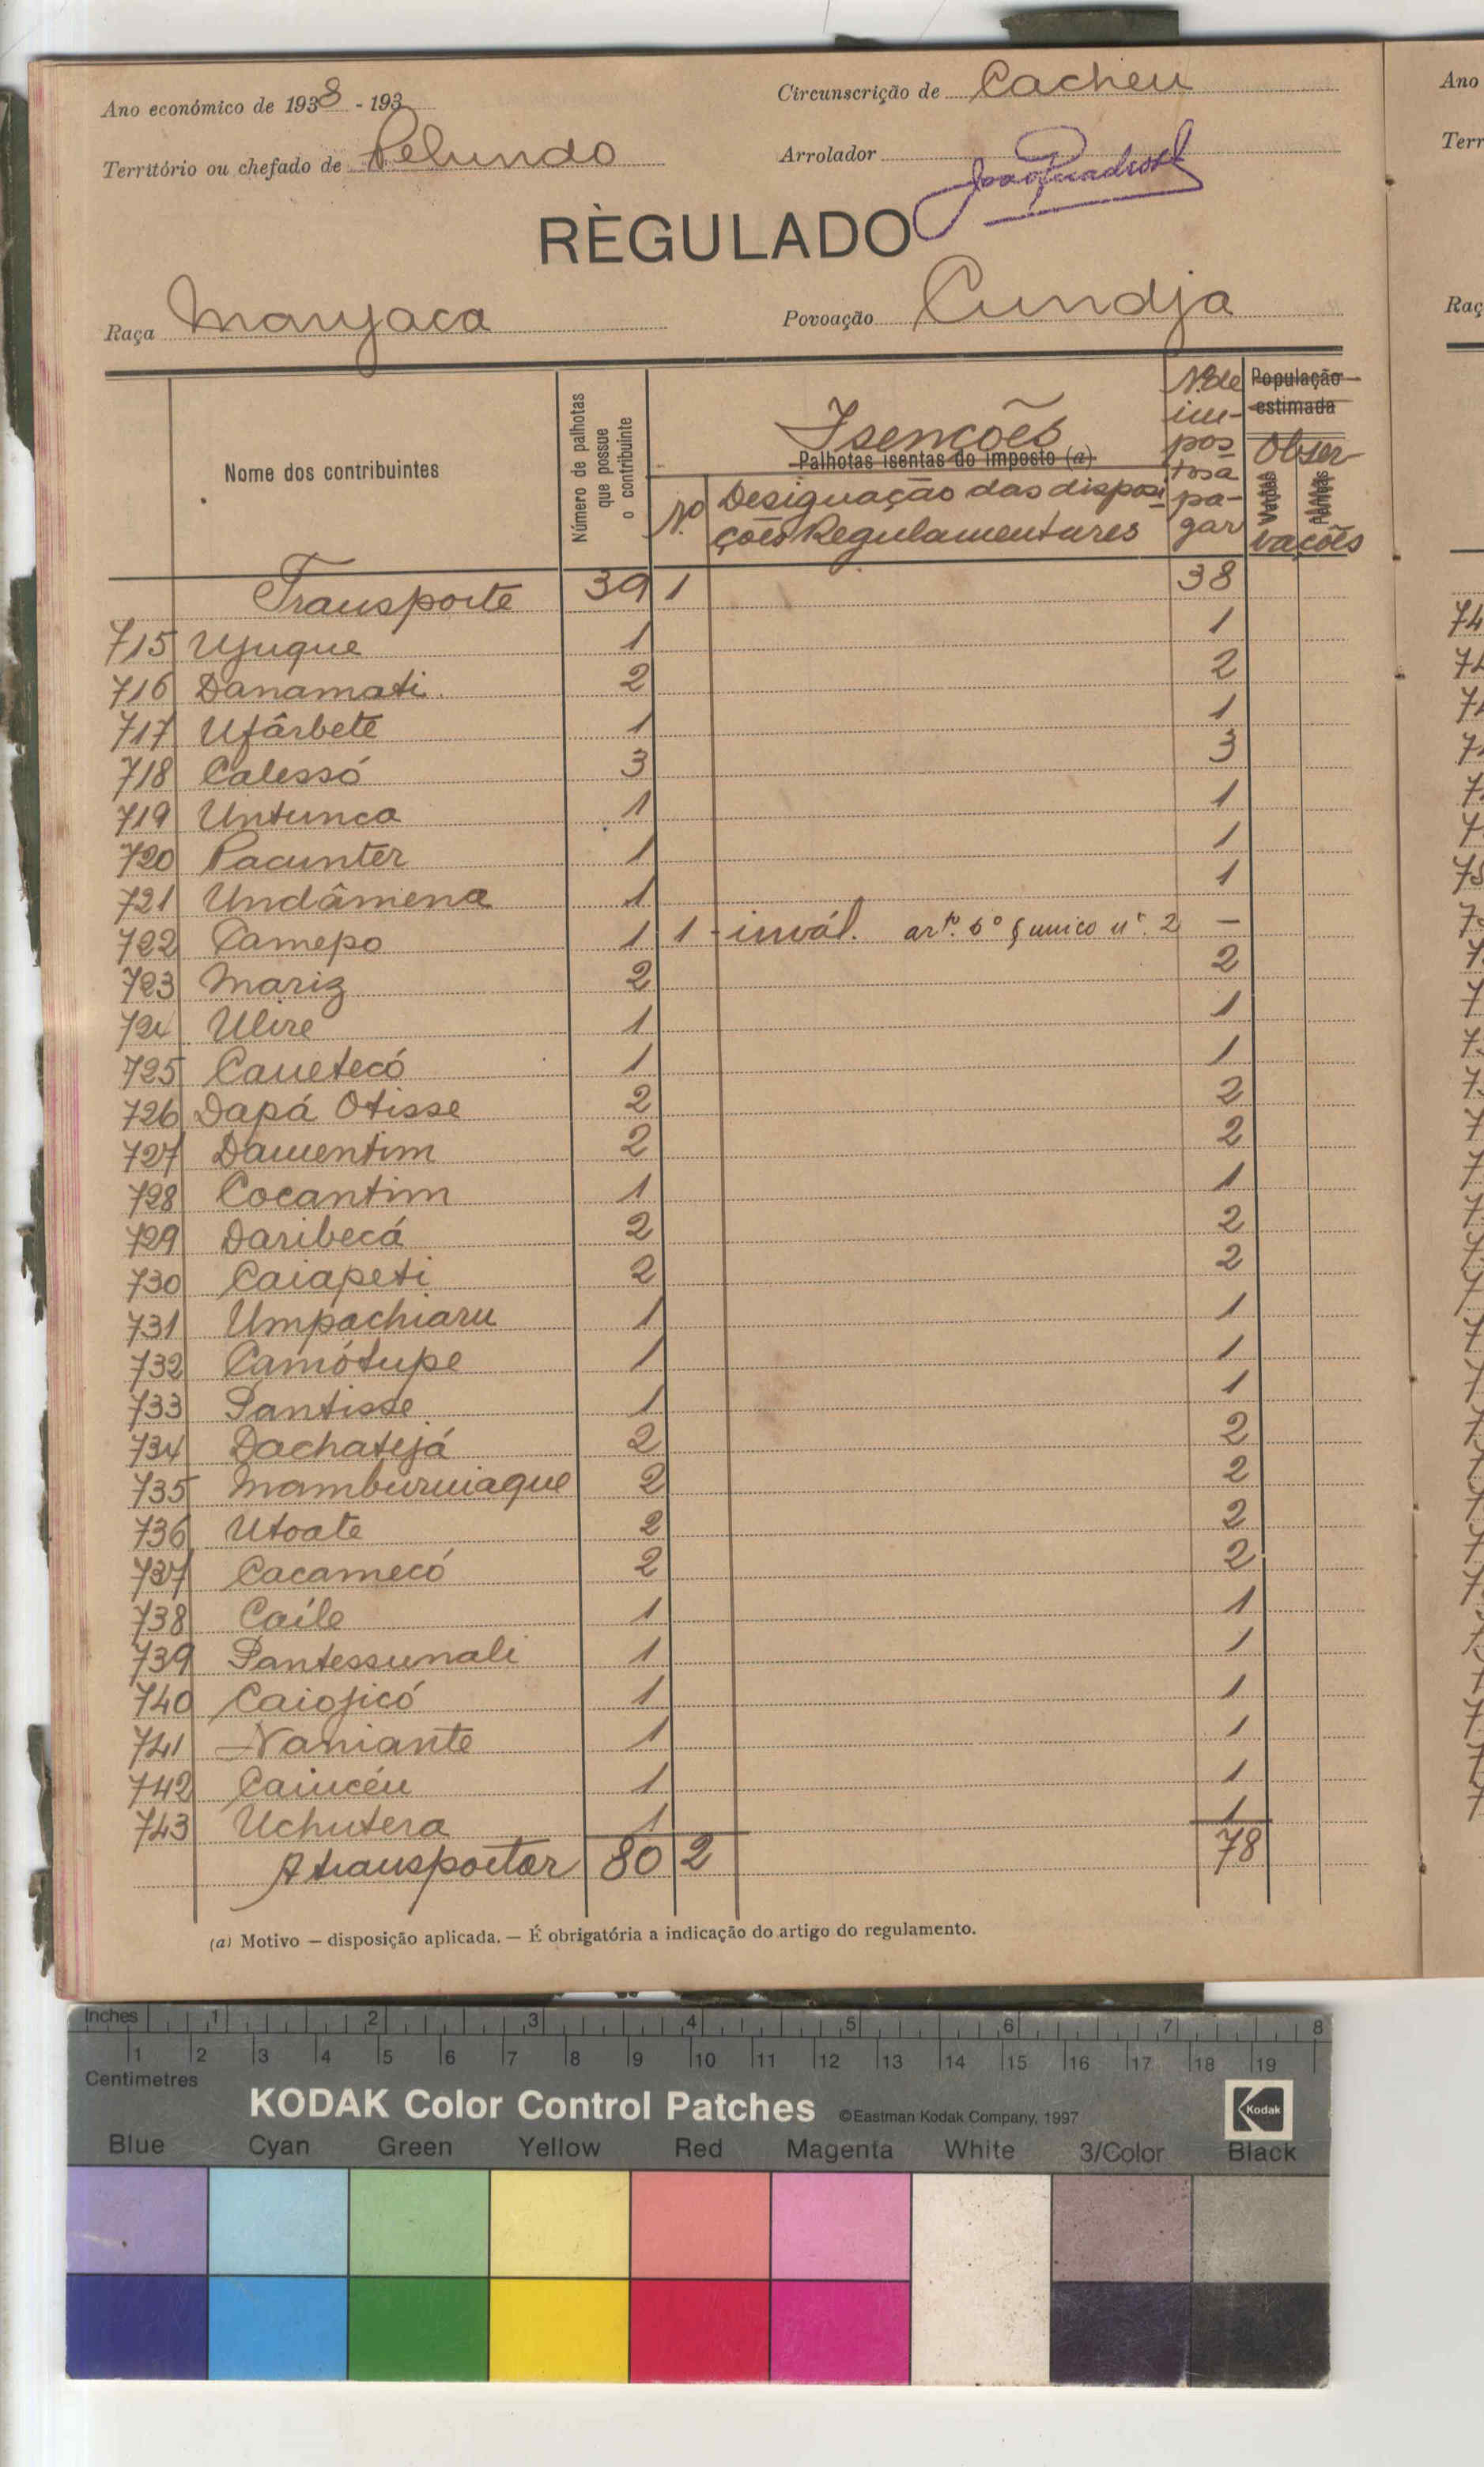 Ano económico de 1938 - 193
Circunscrição de Cacheu
Território ou chefado de Pelundo
Arrolador
RÈGULADO
Raça Manjaca
Povoação Cundja
Nome dos contribuintes
Número de palhotas que possue o contribuinte
Isenções
Palhotas isentas do imposto (a)
Nº
Designação das disposi-
ções Regulamentares
Nº de
im-
pos-
tos a
pa-
gar
População
estimada
Obser-
vações
Transporte 39 1 38
715 Ujuque 1 1
716 Danamati 2 2
717 Ufârbete 1 1
718 Calessó 3 3
719 Untunca 1 1
720 Pacunter 1 1
721 Undâmena 1 1
722 Camepo 1 1 - invál. artº. 6º § unico nº. 2 —
723 Mariz 2 2
724 Ulire 1 1
725 Cauetecó 1 1
726 Dapá Otisse 2 2
727 Damentim 2 2
728 Cocantim 1 1
729 Daribecá 2 2
730 Caiapeti 2 2
731 Umpachiaru 1 1
732 Camótupe 1 1
733 Pantisse 1 1
734 Dachatejá 2 2
735 Mamburniaque 2 2
736 Utoate 2 2
737 Cacamecó 2 2
738 Caíle 1 1
739 Pantessunali 1 1
740 Caiojicó 1 1
741 Naniante 1 1
742 Caiucéu 1 1
743 Uchutera 1 1
A transportar 80 2 78
(a) Motivo — disposição aplicada. — É obrigatória a indicação do artigo do regulamento.
Inches 1 2 3 4 5 6 7 8
1 2 3 4 5 6 7 8 9 10 11 12 13 14 15 16 17 18 19
Centimetres
KODAK Color Control Patches ©Eastman Kodak Company, 1997 Kodak
Blue Cyan Green Yellow Red Magenta White 3/Color Black